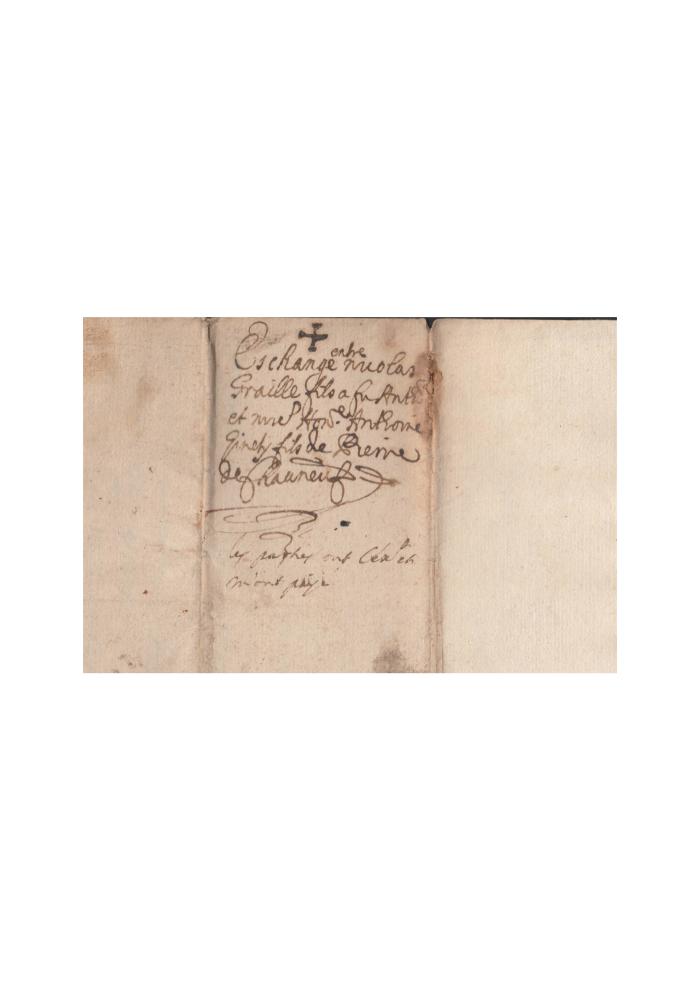 Eschange entre nicolas
Graille fils a fu Anth
et Hon.e Anthoine
fils de Pierre
de Chauneuf
les parties ont l'exa.t et
m'ont payé